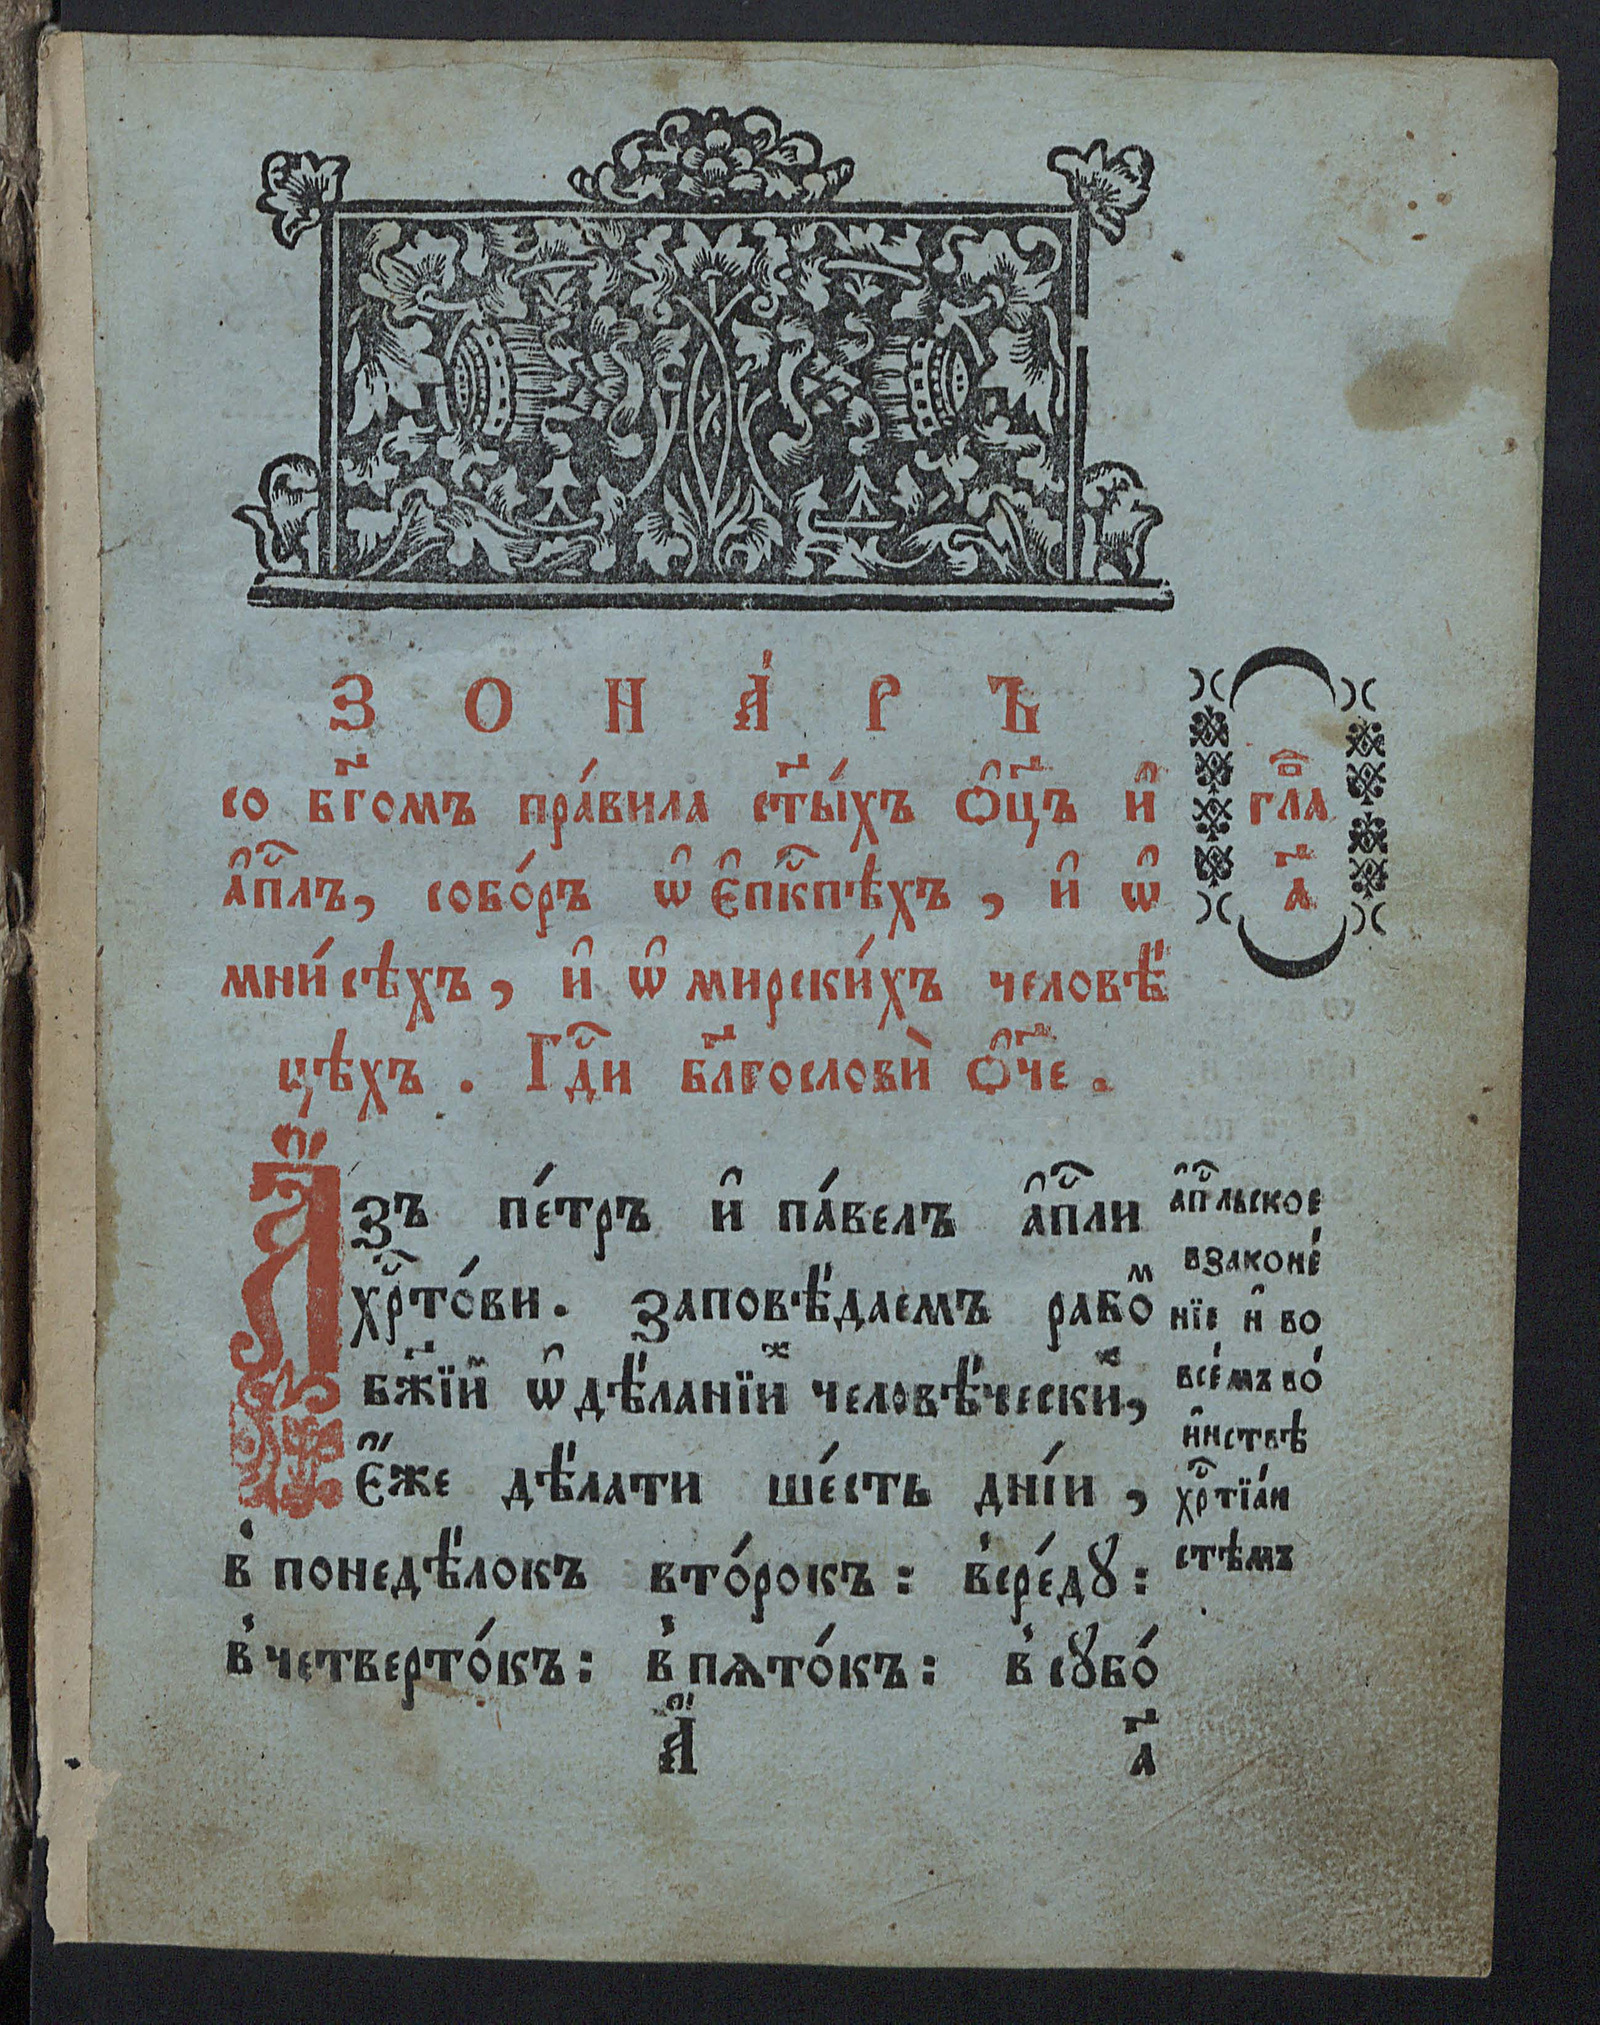 ЗОНА́РЪ
со бг҃омъ пра́вила ст҃ы́хъ ѻ҆ц҃ъ и҆
а҆пⷭ҇лъ, собо́ръ ѡ҆ є҆пкⷭ҇пѣхъ, и҆ ѡ҆
мни́сѣхъ, и҆ ѡ҆ мирски́хъ человѣ́
цѣхъ. Гдⷭ҇и бл҃гословѝ ѻ҆́ч҃е.
глаⷡ҇
а҃
А҆́зъ пе́тръ и҆ па́велъ а҆пⷭ҇ли
хрⷭ҇то́ви. заповѣ́даемъ рабоⷨ
бж҃їй ѡ҆ дѣ́ланїиⷯ человѣ́ческиⷯ,
є҆́же дѣ́лати ше́сть дні́и,
в̾ понедѣ́локъ вто́рокъ: в̾сре́дꙋ:
в̾ четверто́къ: в̾ пѧто́къ: в̾ сꙋбо́
А҆́ а҃
а҆пⷭ҇льское
взаконе́
нїе и҆ во
все́мъ во́
и҆нствѣ
хрⷭ҇тїа́н
стѣмъ